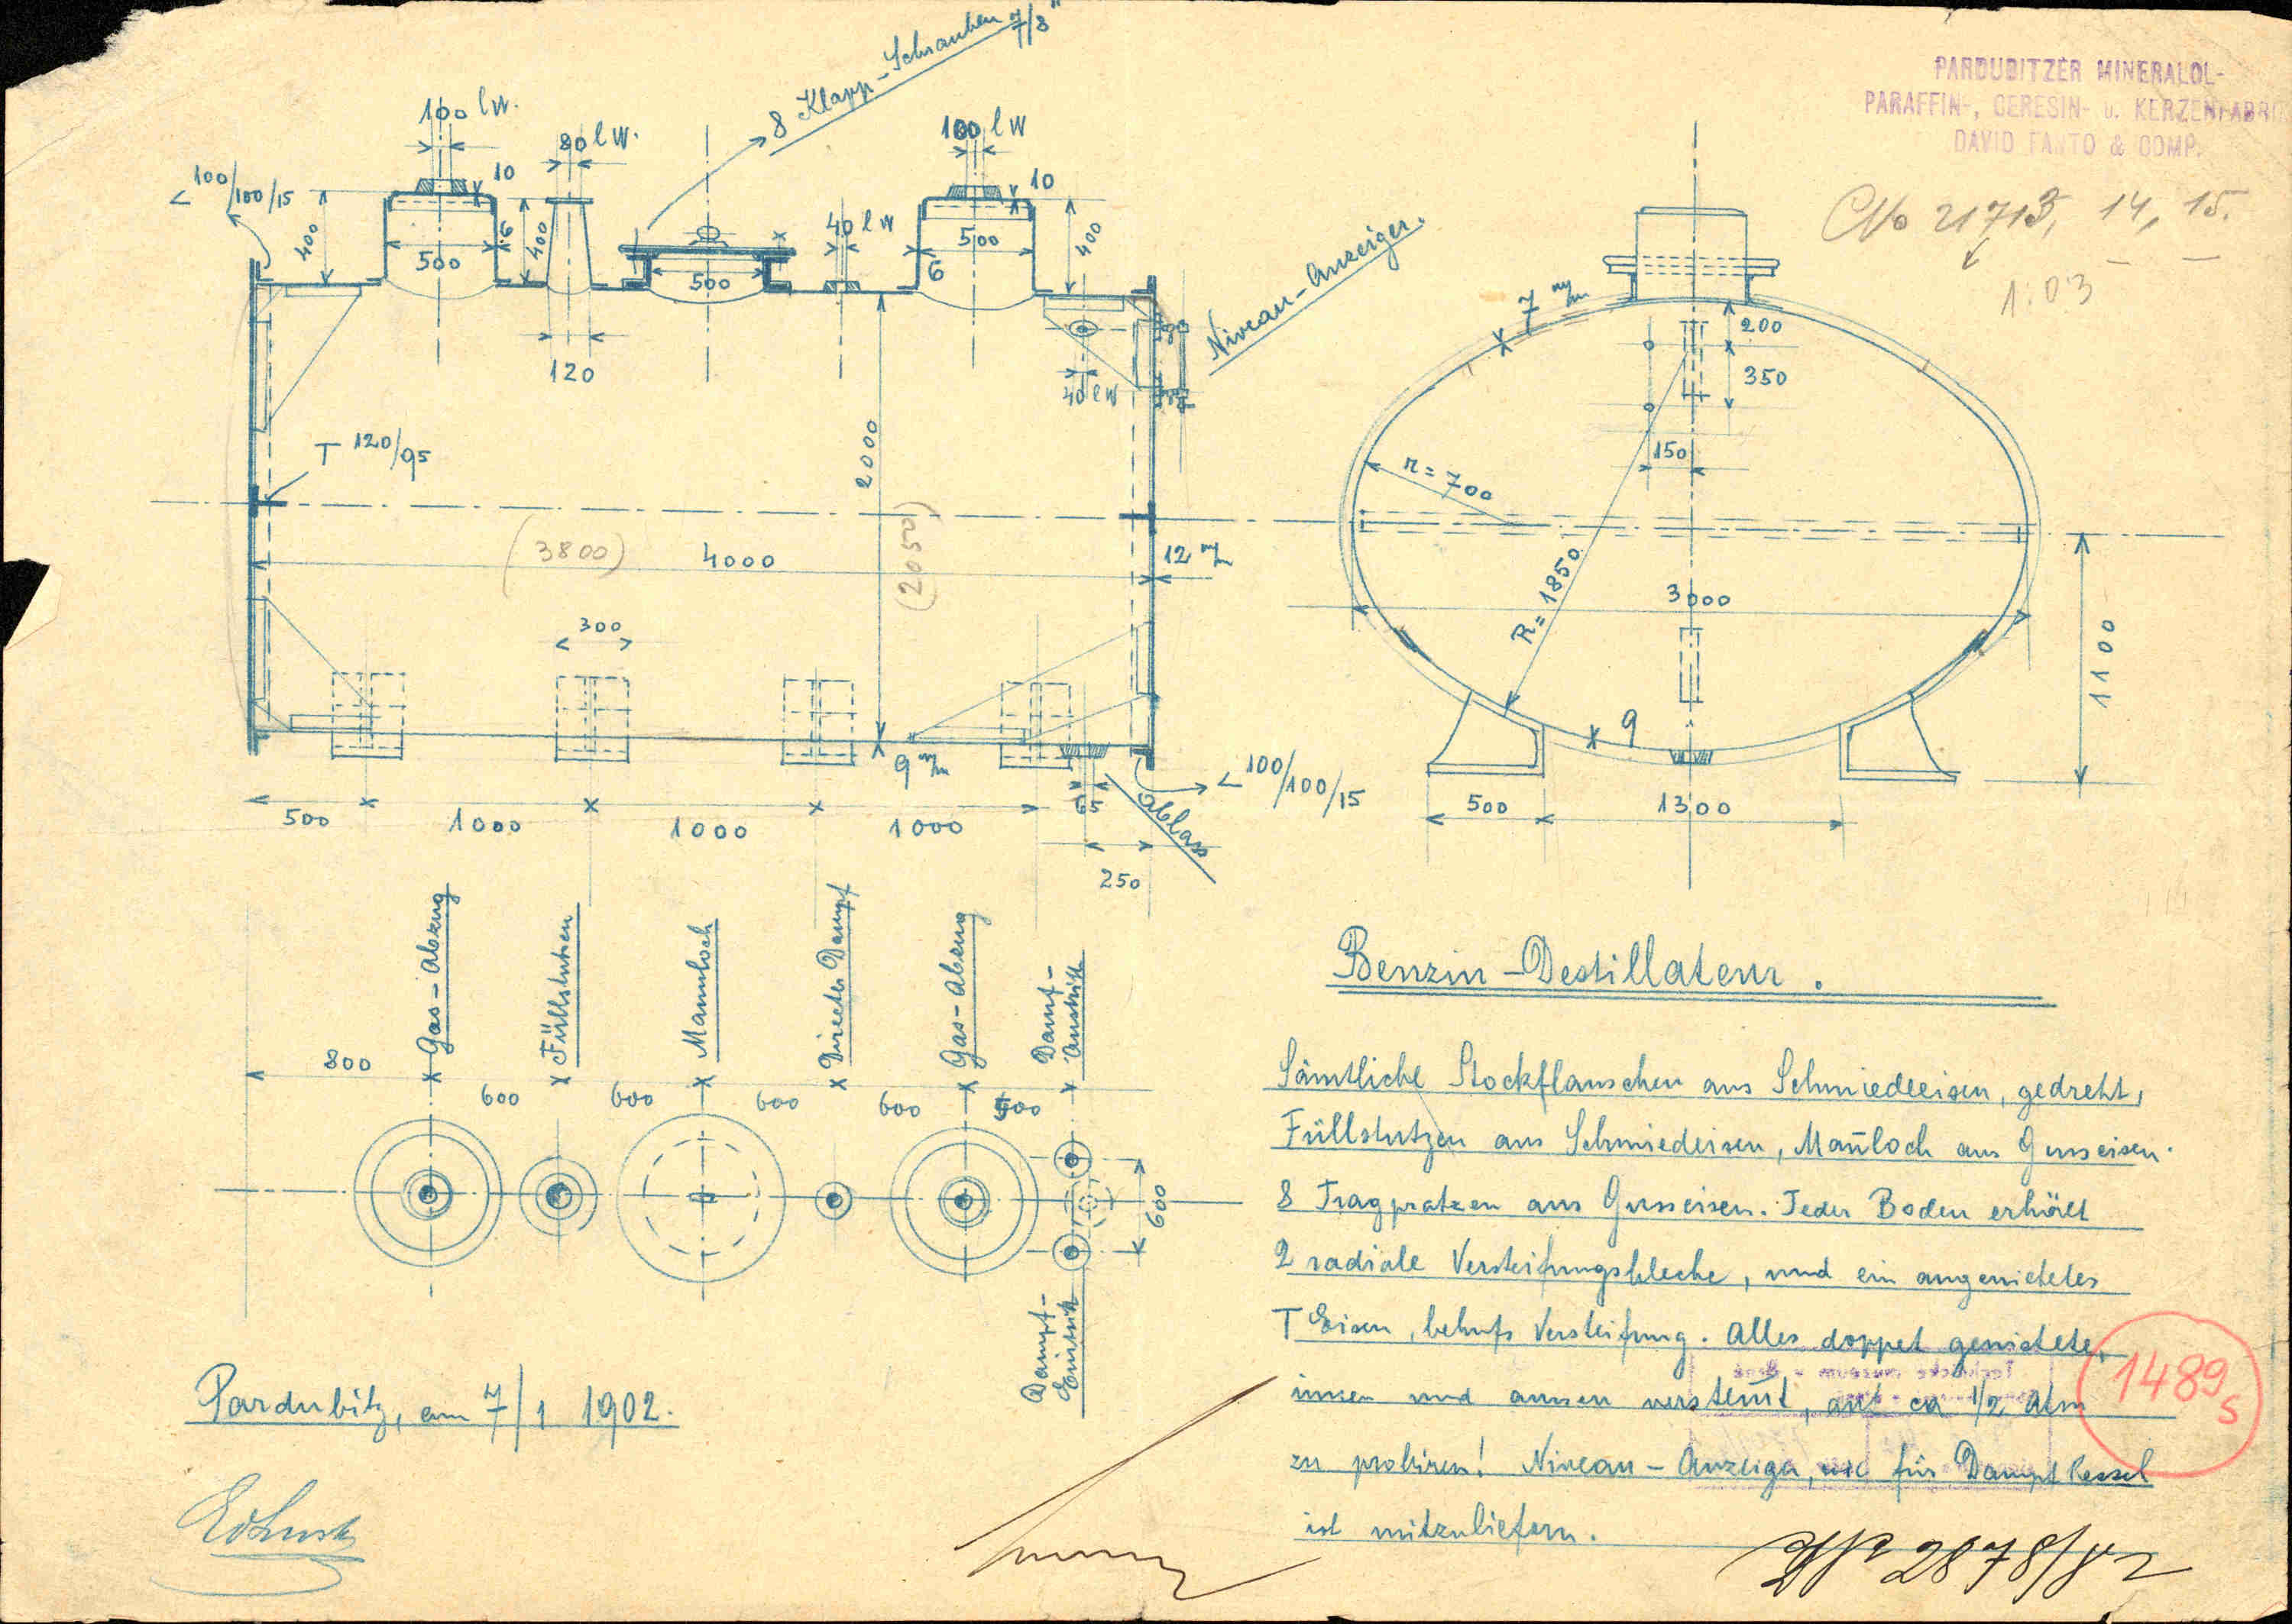 8 Klapp-Schrauben 7/8"
PARDUBITZER MINERALÖL-
PARAFFIN-, CERESIN- u. KERZENFABRI
DAVID FANTO & COMP.
No 21713, 14, 15.
1:03
100 l W.
80 l W.
100 l W
< 100/100/15
10
10
400
500
6
400
500
40 l W
500
6
400
Niveau-Anzeiger.
120
40 l W
T 120/95
2000
(3800)
4000
(2050)
12 m/m
300
9 m/m
< 100/100/15
65
Ablass
500
1000
1000
1000
250
7 m/m
200
350
150
r = 700
R = 1850
3000
1100
9
500
1300
Gas-Abzug
Füllstutzen
Mannloch
Directer Dampf
Gas-Abzug
Dampf-
Austritt
800
600
600
600
600
500
600
Dampf-
Eintritt
Benzin-Destillateur.
Sämtliche Stockflanschen aus Schmiedeeisen, gedreht,
Füllstutzen aus Schmiedeisen, Man̄loch aus Gusseisen.
8 Tragpratzen aus Gusseisen. Jeder Boden erhält
2 radiale Versteifungsbleche, und ein angenietetes
T Eisen, behufs Versteifung. Alles doppelt genietete,
innen und aussen verstemt, auf ca 1/2 Atm
zu probiren! Niveau-Anzeiger, wie für Dampfkessel
ist mitzuliefern.
Pardubitz, am 7/1 1902.
1489
S
2878/42